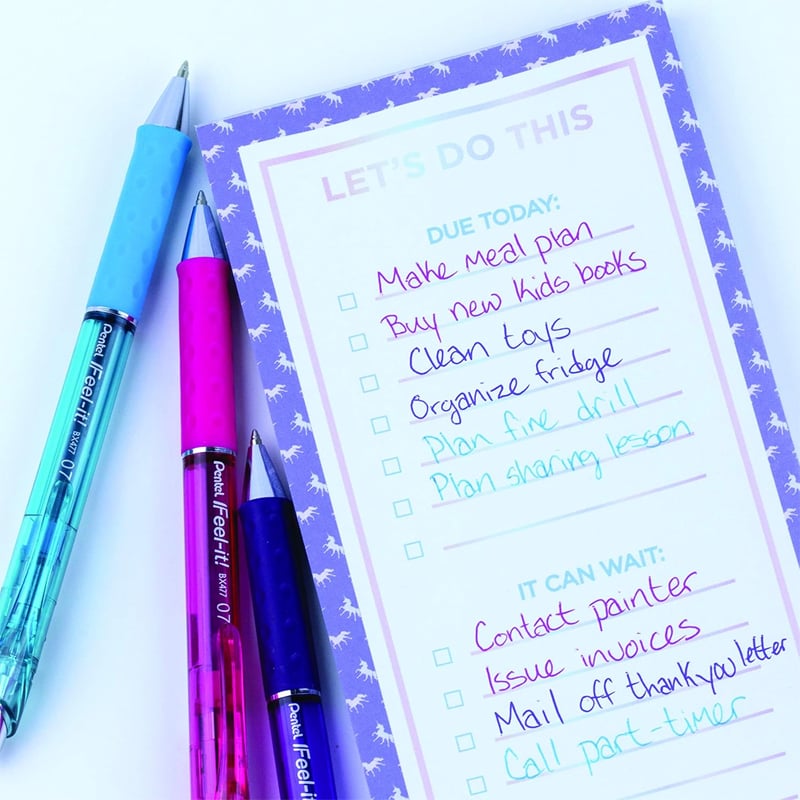 LET'S DO THIS
DUE TODAY:
Make meal plan
Buy new kids books
Clean toys
Organize fridge
Plan fire drill
Plan sharing lesson
IT CAN WAIT:
Contact painter
Issue invoices
Mail off thank you letter
Call part-timer
Pentel IFeel-it! BX477 07
Pentel IFeel-it! BX477 07
Pentel IFeel-it!